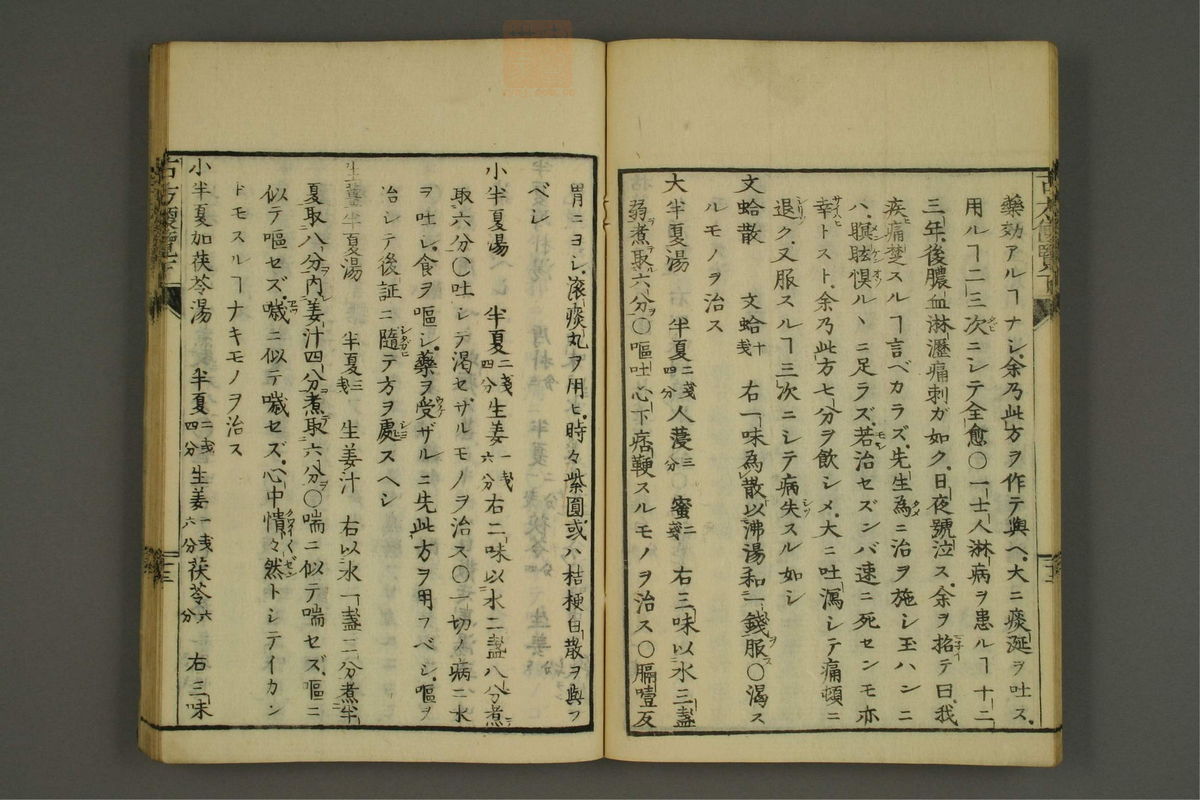 藥効アルヿナシ。余乃此方ヲ作テ與ヘ。大ニ痰涎ヲ吐ス。
用ルヿ二三次ニシテ全愈〇一士人淋病ヲ患ルヿ十二
三年。後膿血淋瀝痛刺ガ如ク。日夜號泣ス。余ヲ招テ曰。我
疾痛楚スルヿ言ベカラズ。先生為ニ治ヲ施シ玉ハンニ
ハ。瞑眩惧ルヽニ足ラズ。若治セズンバ速ニ死センモ亦
幸トスト。余乃此方七分ヲ飲シメ。大ニ吐瀉シテ痛頓ニ
退ク。又服スルヿ三次ニシテ病失スル如シ
文蛤散 文蛤十戔 右一味為散以沸湯和一錢服〇渴ス
ルモノヲ治ス
大半夏湯 半夏二戔四分人薓三分 蜜二戔 右三味以水三盞
弱煮取六分〇嘔吐心下痞鞕スルモノヲ治ス〇膈噎反
胃ニヨシ。滚痰丸ヲ用ヒ。時々紫圓或ハ桔梗白散ヲ與フ
ベシ
小半夏湯 半夏二戔四分生姜一戔六分右二味以水二盞八分煮
取六分〇吐シテ渴セザルモノヲ治ス〇一切ノ病ニ水
ヲ吐シ。食ヲ嘔シ。藥ヲ受ザルニ先此方ヲ用フベシ。嘔ヲ
治シテ後証ニ隨テ方ヲ處スヘシ
生薑半夏湯 半夏三戔 生姜汁 右以水一盞二分煮半
夏取八分内姜汁四分煮取六分〇喘ニ似テ喘セズ。嘔ニ
似テ嘔セズ。噦ニ似テ噦セズ。心中憒々然トシテイカン
トモスルヿナキモノヲ治ス
小半夏加茯苓湯 半夏二戔四分生姜一戔六分茯苓六分 右三味